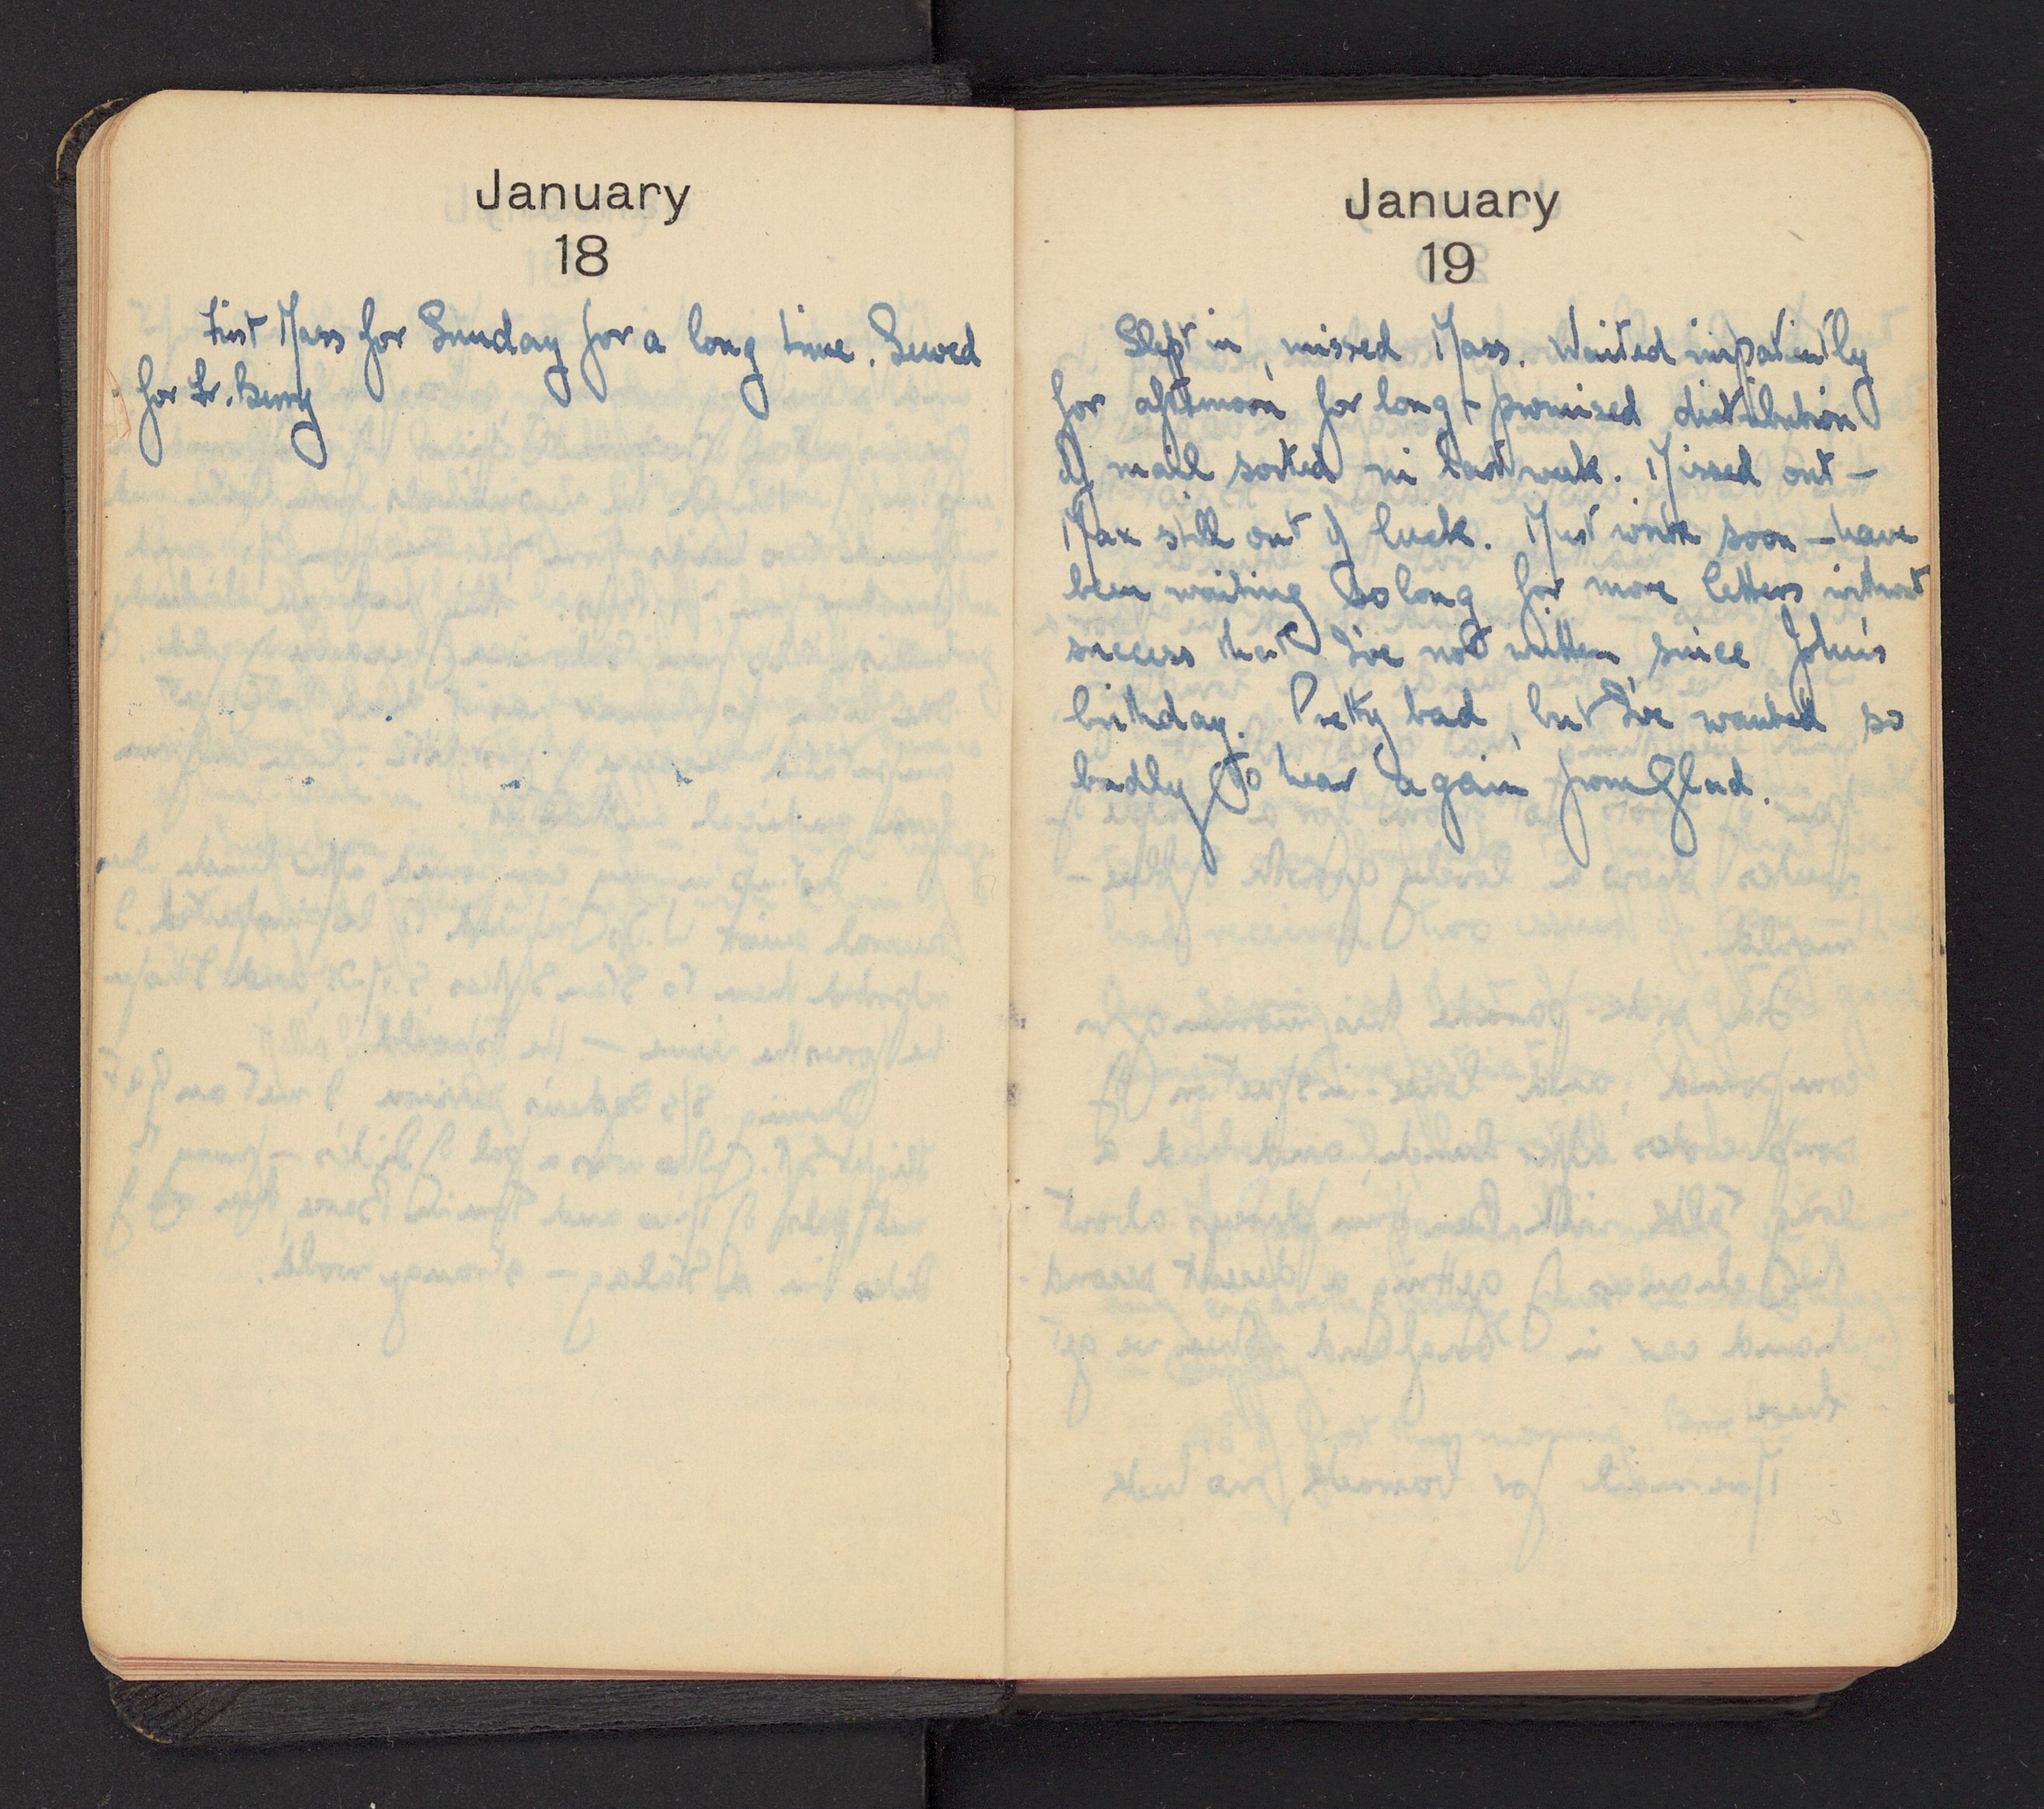 January
18
First Mass for Sunday for a long time. Served
for Fr. Berry
January
19
Slept in, missed Mass. Waited impatiently
for afternoon for long-promised distribution
of mail sorted in last week. Missed out —
Max still out of luck. Must write soon — have
been waiting so long for more letters without
success that I've not written since John's
birthday. Pretty bad, but I've wanted so
badly to hear again from Glad.